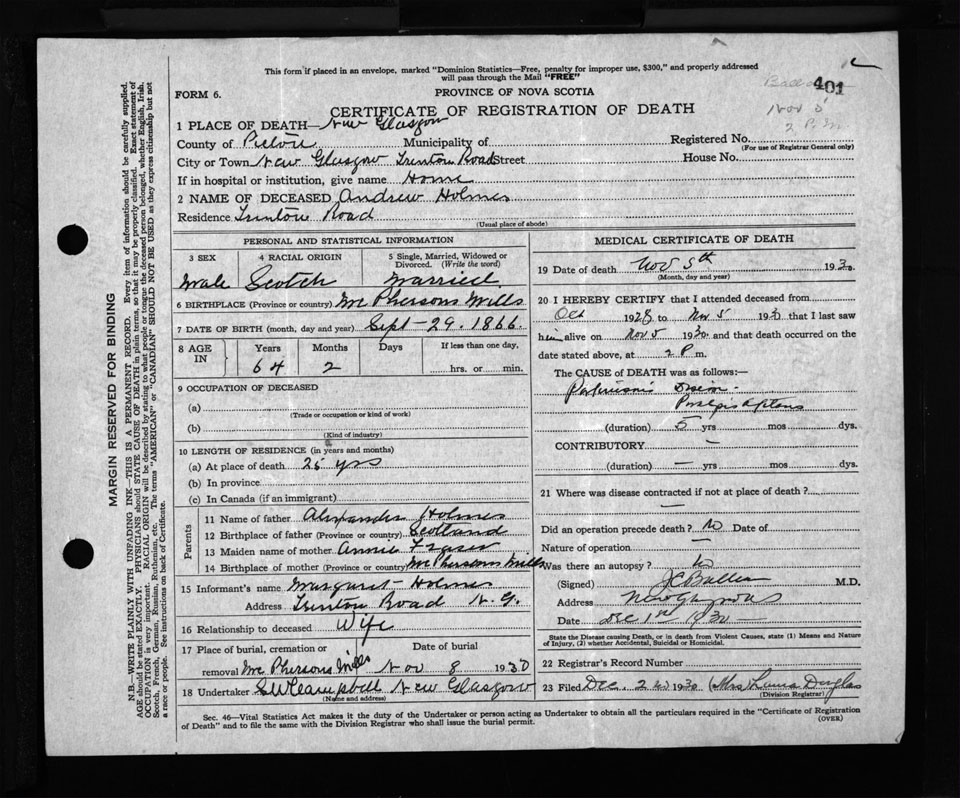 This form if placed in an envelope, marked "Dominion Statistics—Free, penalty for improper use, $300," and properly addressed
will pass through the Mail "FREE"
401
Nov 5
2 P.M
FORM 6.
PROVINCE OF NOVA SCOTIA
CERTIFICATE OF REGISTRATION OF DEATH
1 PLACE OF DEATH— New Glasgow
County of Pictou Municipality of Registered No.
(For use of Registrar General only)
City or Town New Glasgow Trenton Road Street House No.
If in hospital or institution, give name Home
2 NAME OF DECEASED Andrew Holmes
Residence Trenton Road
(Usual place of abode)
PERSONAL AND STATISTICAL INFORMATION
3 SEX 4 RACIAL ORIGIN 5 Single, Married, Widowed or Divorced. (Write the word)
Male Scotch Married
6 BIRTHPLACE (Province or country) Mc Phersons Mills
7 DATE OF BIRTH (month, day and year) Sept - 29. 1866.
8 AGE IN Years Months Days If less than one day,
64 2 hrs. or min.
9 OCCUPATION OF DECEASED
(a)
(Trade or occupation or kind of work)
(b)
(Kind of industry)
10 LENGTH OF RESIDENCE (in years and months)
(a) At place of death 25 yrs
(b) In province
(c) In Canada (if an immigrant)
Parents
11 Name of father Alexander Holmes
12 Birthplace of father (Province or country) Scotland
13 Maiden name of mother Annie Fraser
14 Birthplace of mother (Province or country) Mc Phersons Mills
15 Informant's name Margaret Holmes
Address Trenton Road N.G.
16 Relationship to deceased Wife
17 Place of burial, cremation or Date of burial
removal Mc Phersons Mills Nov 8 1930
18 Undertaker S W Campbell New Glasgow
(Name and address)
MEDICAL CERTIFICATE OF DEATH
19 Date of death Nov 5th 1930.
(Month, day and year)
20 I HEREBY CERTIFY that I attended deceased from
Oct 1928 to Nov 5 1930 that I last saw
him alive on Nov 5 1930 and that death occurred on the
date stated above, at 2 P m.
The CAUSE of DEATH was as follows:—
Parkinson's Disease -
Paralysis Agitans
(duration) 5 yrs mos dys.
CONTRIBUTORY —
(duration) — yrs mos dys.
21 Where was disease contracted if not at place of death?
—
Did an operation precede death? No Date of
Nature of operation —
Was there an autopsy? No
(Signed) J C Ballem M.D.
Address New Glasgow NS
Date Dec 1st 1930 —
State the Disease causing Death, or in death from Violent Causes, state (1) Means and Nature
of Injury, (2) whether Accidental, Suicidal or Homicidal.
22 Registrar's Record Number
23 Filed Dec. 2 1930 (Mrs) Douglas
(Division Registrar)
Sec. 46—Vital Statistics Act makes it the duty of the Undertaker or person acting as Undertaker to obtain all the particulars required in the "Certificate of Registration
of Death" and to file the same with the Division Registrar who shall issue the burial permit.
(OVER)
MARGIN RESERVED FOR BINDING
N.B.—WRITE PLAINLY WITH UNFADING INK—THIS IS A PERMANENT RECORD. Every item of information should be carefully supplied.
AGE should be stated EXACTLY. PHYSICIANS should STATE CAUSE OF DEATH in plain terms, so that it may be properly classified. Exact statement of
OCCUPATION is very important. RACIAL ORIGIN will be described by stating to what people or tongue the deceased person belonged, whether English, Irish,
Scotch, French, German, Russian, Ruthenian, etc. The terms "AMERICAN" or "CANADIAN" SHOULD NOT BE USED as they express citizenship but not
a race or people. See instructions on back of Certificate.